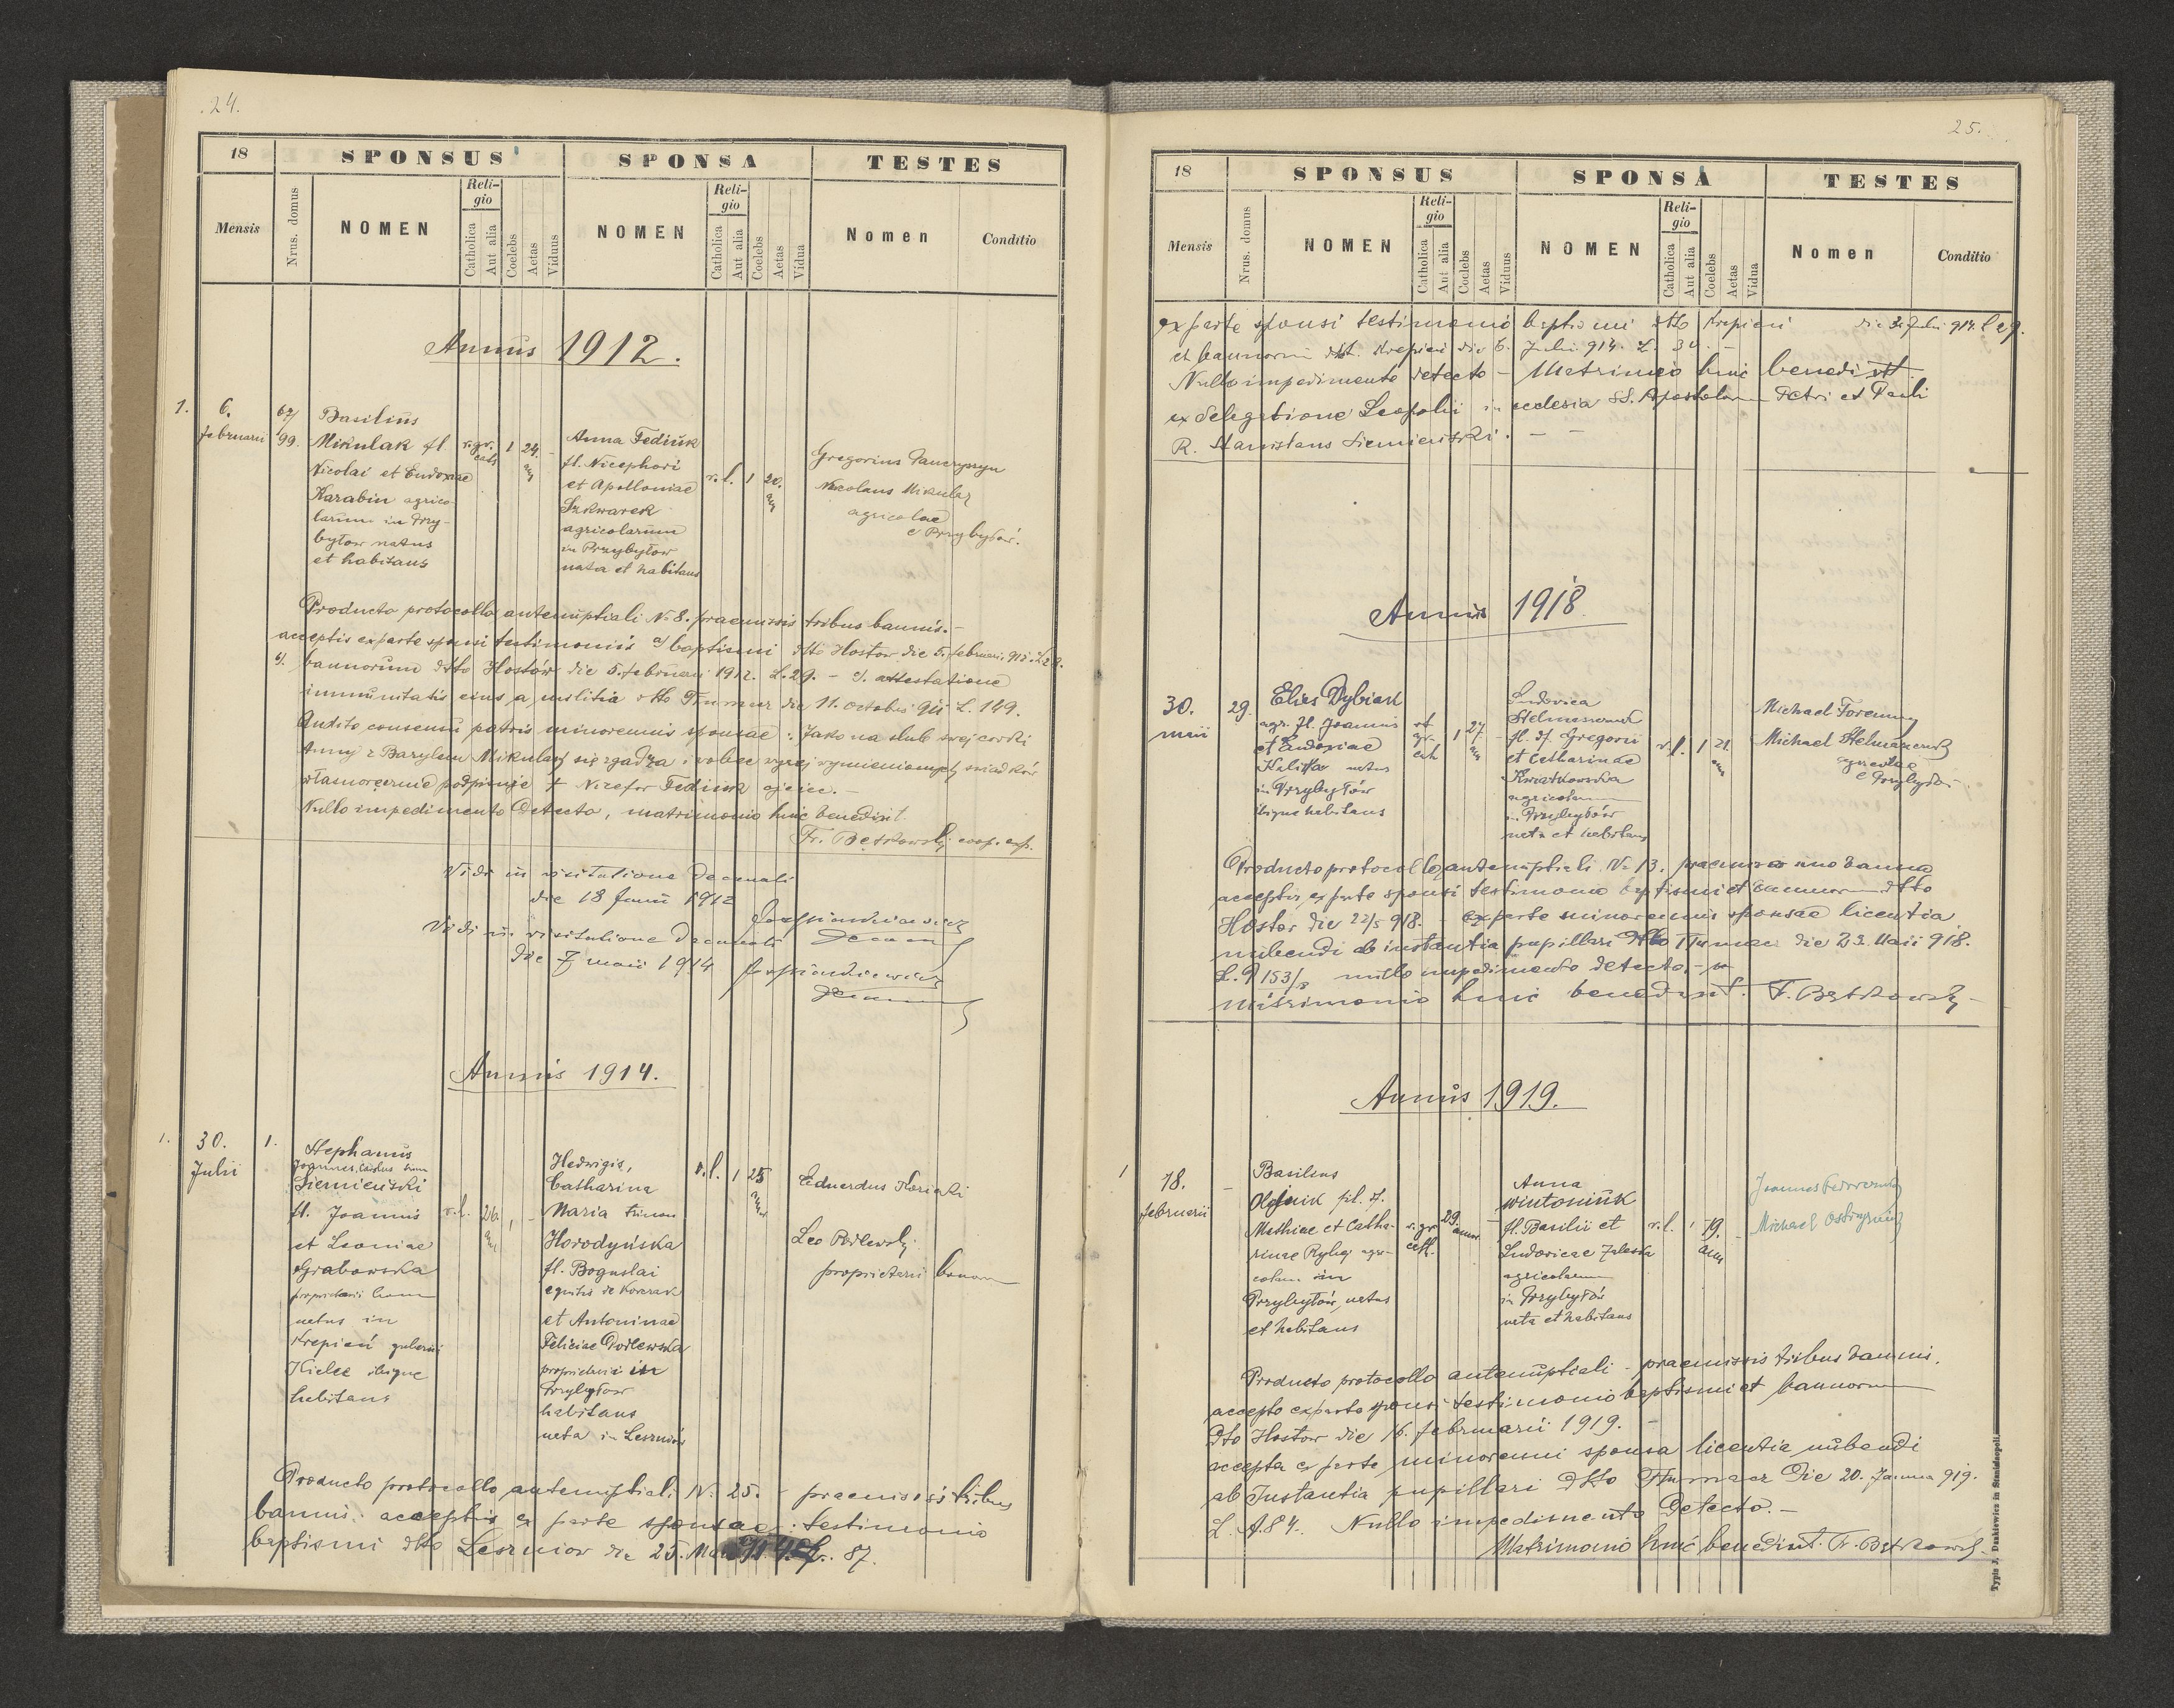 24.
18 SPONSUS SPONSA TESTES
Mensis Nrus. domus NOMEN Religio Catholica Aut alia Coelebs Aetas Viduus NOMEN Religio Catholica Aut alia Coelebs Aetas Vidua Nomen Conditio
Annus 1912.
1. 6. februarii
67/99.
Basilius
Mikulak fl
Nicolai et Eudoxiae
Karabin agrico-
larum in Przy-
bytow natus
et habitans
r. gr. cath
1 24.
Anna Fediuk
fl. Nicephori
et Apolloniae
Szkwarek
agricolarum
in Przybytow
nata et habitans
r. l. 1 20.
Gregorius
Nicolaus Mikulak
agricolae
e Przybytów.
Producto protocollo antenuptiali № 8. praemissis tribus bannis.-
acceptis ex parte sponsi testimoniis a/ baptismi dtto Hostow die 5. februarii 912.
bannorum dtto Hostów die 5. februarii 1912. L. 29. - attestatione
immunitatis eius a militia dtto Tłumacz die 11. octobris 911 L. 149.
Audito consensu patris minorennis sponsae: Jako na ślub swej córki
Anny z Bazylem Mikulak się zgadza i wobec wyżej wymienionych świadków
własnoręcznie podpisuje + Nicefor Fediuk ojciec.-
Nullo impedimento detecto, matrimonio huic benedixit
Fr. Bętkowski coop. exp.
Vidi in visitatione decanali
die 18 Junii 1912
Vidi in visitatione decanali
die 7 maii 1914
Annus 1914.
1. 30. Julii
1.
Stephanus
Joannes, Carolus
Siemieński
fl. Joannis
et Leoniae
Grabowska
natus in
Krepień gubernii
Kielce ibique
habitans
r. l. 26.
Hedwigis,
Catharina
Maria
Horodyńska
fl. Boguslai
equitis de Korczak
et Antoninae
Feliciae Podlewska
in
Przybytow
habitans
nata in Lesznów
r. l. 1 25
Eduardus
Leo Podlewski
proprietarii bonorum
Producto protocollo antenuptiali № 25. - praemissis tribus
bannis, acceptis ex parte sponsae: testimonio
baptismi dtto Lesznior die 25. L. 87.
25.
18 SPONSUS SPONSA TESTES
Mensis Nrus. domus NOMEN Religio Catholica Aut alia Coelebs Aetas Viduus NOMEN Religio Catholica Aut alia Coelebs Aetas Vidua Nomen Conditio
ex parte sponsi testimonio baptismi dtto Krepieni die 3. Julii 914. L 29.
et bannorum dtt. Krepieni die 6. Julii 914. L.
Nullo impedimento detecto - Matrimonio huic benedixit
ex delegatione Leopolii in ecclesia SS. Apostolorum Petri et Pauli
R. Stanislaus Siemieński. - -
Annus 1918
30. maii
29.
Elias Dybiak
agr. fl. Joannis
et Eudoxiae
natus
in Przybytów
ibique habitans
rt gr. cath
1 27
Ludovica
fl. df. Gregorii
et Catharinae
Kwiatkowska
agricolarum
in Przybytów
nata et habitans
r. l. 1 21.
Michael
Michael
agricolae
e Przybytów
Producto protocollo antenuptiali № 13. praemisso uno banno
acceptis ex parte sponsi testimonio baptismi et bannorum dtto
Hostow die 22/5 918. - Ex parte minorennis sponsae licentia
nubendi ab instantia pupillari dtto Tłumacz die 29. Maii 918.
nullo impedimento detecto. -
matrimonio huic benedixit. F. Bętkowski
Annus 1919.
1 18. februarii
Basilius
Olejnik fil. df.
Mathiae et Catha-
rinae
in
Przybytów, natus
et habitans
r. gr. cath.
29.
Anna
Wintoniuk
fl. Basilii et
Ludovicae Zaleska
agricolarum
in Przybytów
nata et habitans
r. l. 1 19.
Joannes
Michael
Producto protocollo antenuptiali - praemissis tribus bannis.
accepto ex parte sponsi testimonio baptismi et bannorum
dtto Hostow die 16. februarii 1919. -
accepta ex parte minorenni sponsa licentia nubendi
ab Instantia pupillari dtto Tłumacz die 20. Januar 919.
L. A. 84. Nullo impedimento detecto. -
Matrimonio huic benedixit. Fr. Bętkowski
Typis J. Dankiewicz in Stanislaopoli.